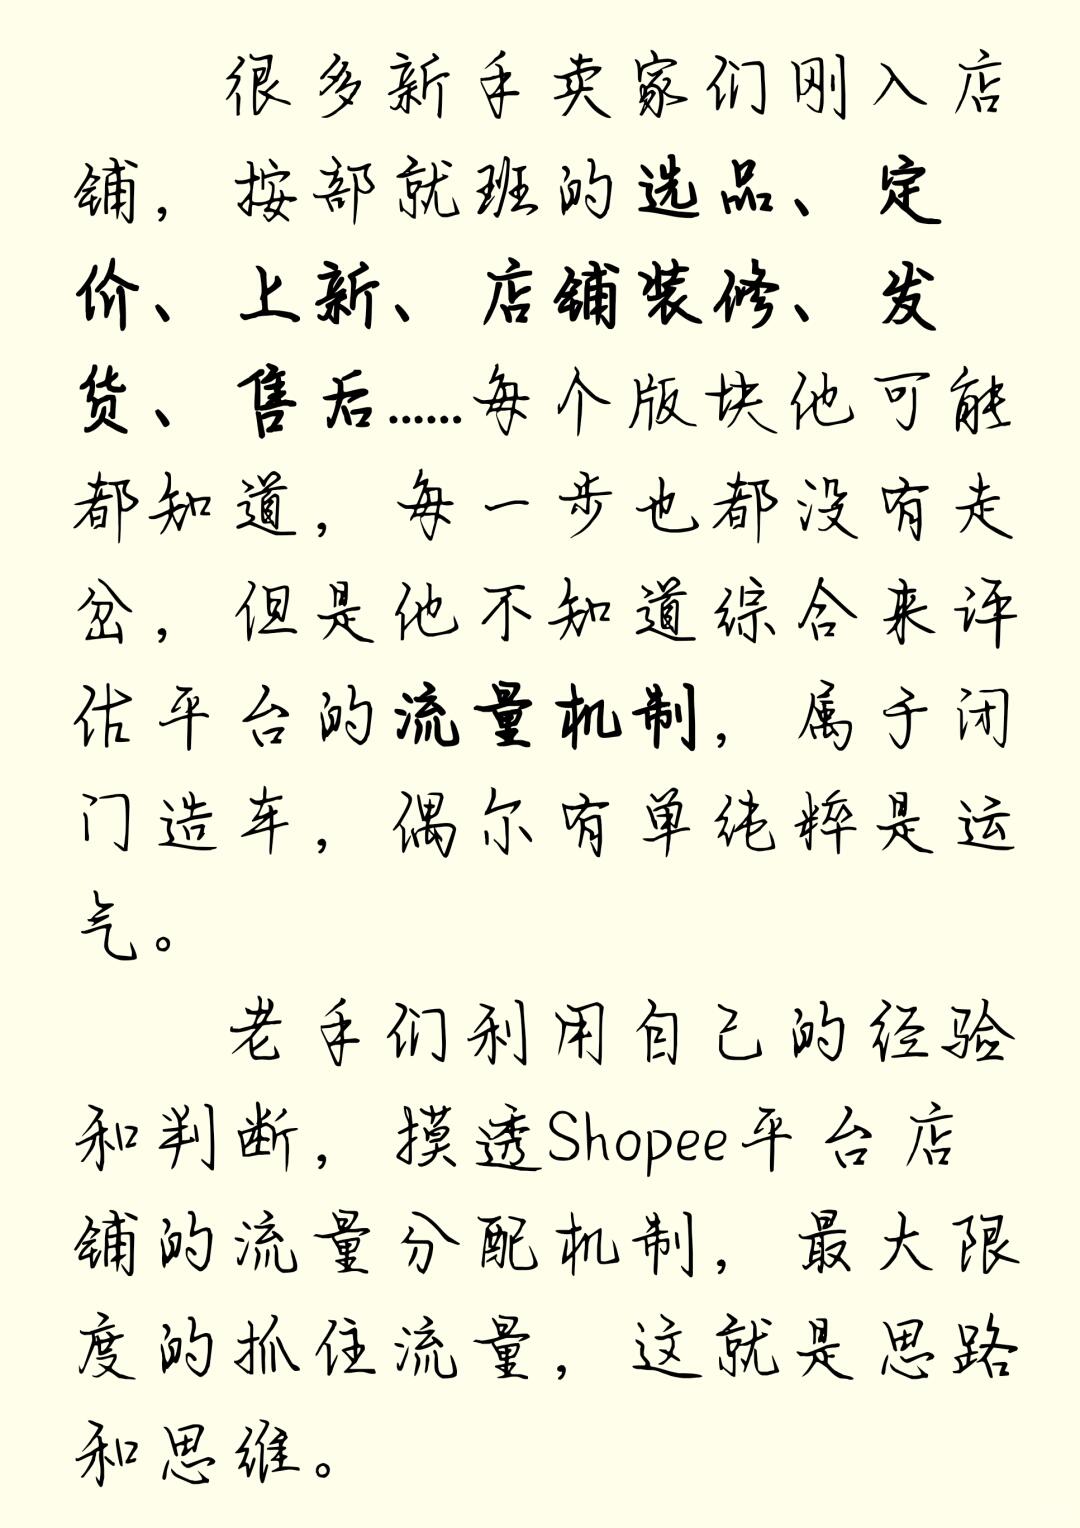 很多新手卖家们刚入店
铺，按部就班的选品、定
价、上新、店铺装修、发
货、售后……每个版块他可能
都知道，每一步也都没有走
岔，但是他不知道综合来评
估平台的流量机制，属于闭
门造车，偶尔有单纯粹是运
气。
老手们利用自己的经验
和判断，摸透Shopee平台店
铺的流量分配机制，最大限
度的抓住流量，这就是思路
和思维。